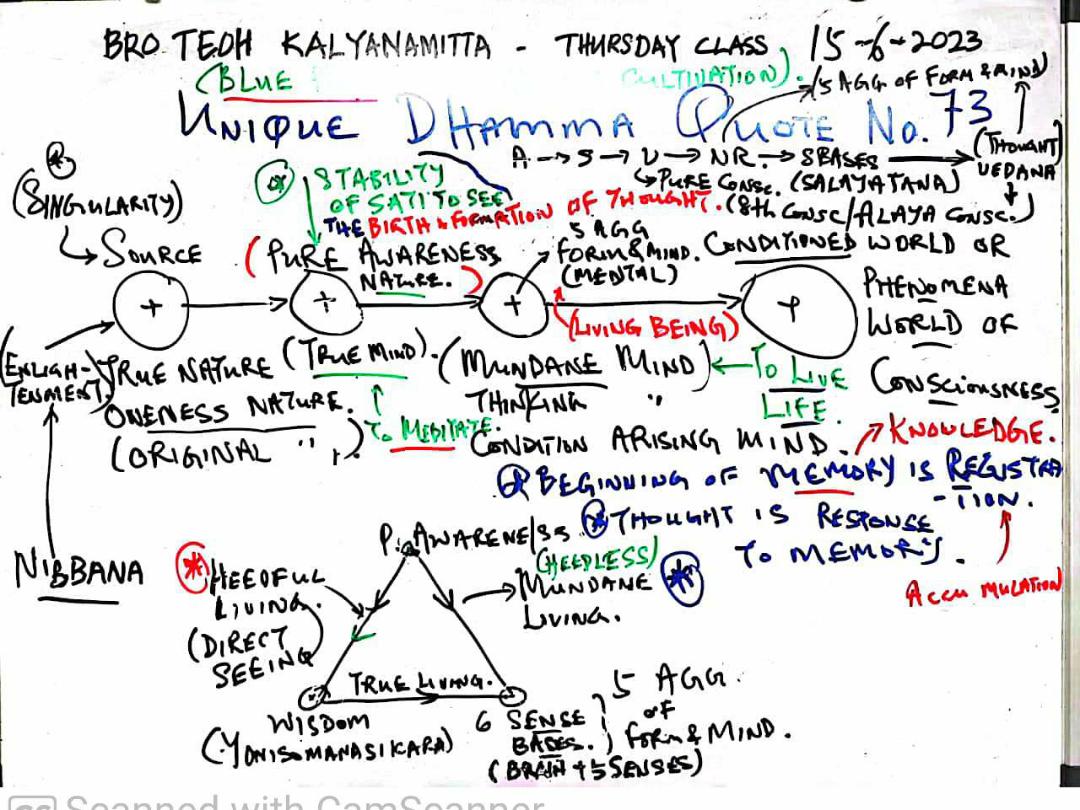 BRO TEOH KALYANAMITTA - THURSDAY CLASS 15-6-2023
(BLUE CULTIVATION).
UNIQUE DHAMMA QUOTE No. 73
(5 AGG OF FORM & MIND)
(THOUGHT)
VEDANA
A → S → V → NR. → SBASES
↳ PURE CONSC. (SALAYATANA)
(8th CONSC/ALAYA CONSC.)
* STABILITY
OF SATI TO SEE
THE BIRTH & FORMATION OF THOUGHT.
*
(SINGULARITY)
↳ SOURCE
(PURE AWARENESS
NATURE.)
5 AGG
FORM & MIND.
(MENTAL)
CONDITIONED WORLD OR
PHENOMENA
WORLD OF
CONSCIOUSNESS
+ + + +
(LIVING BEING)
(ENLIGH-
TENMENT)
TRUE NATURE
ONENESS NATURE.
(ORIGINAL ")
(TRUE MIND).
TO MEDITATE.
(MUNDANE MIND)
THINKING "
CONDITION ARISING MIND.
← TO LIVE
LIFE.
KNOWLEDGE.
* BEGINNING OF MEMORY IS REGISTRA
-TION.
* THOUGHT IS RESPONSE
TO MEMORY.
ACCUMULATION
NIBBANA
P. AWARENESS
* HEEDFUL
LIVING.
(DIRECT
SEEING)
(HEEDLESS)
MUNDANE *
LIVING.
TRUE LIVING.
WISDOM
(YONISOMANASIKARA)
6 SENSE
BASES.
(BRAIN + 5 SENSES)
5 AGG.
OF
FORM & MIND.
Scanned with CamScanner